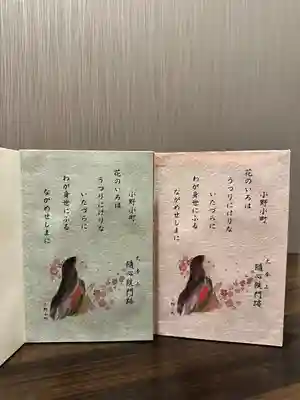 小野小町
花のいろは
うつりにけりな
いたづらに
わが身世にふる
ながめせしまに
大本山
随心院門跡
小野小町
花のいろは
うつりにけりな
いたづらに
わが身世にふる
ながめせしまに
大本山
随心院門跡